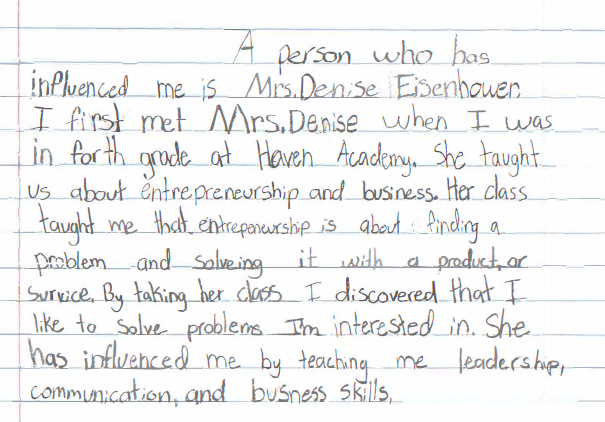 A person who has
influenced me is Mrs.Denise Eisenhower.
I first met Mrs.Denise when I was
in forth grade at Haven Academy. She taught
us about entrepreneurship and business. Her class
taught me that entrepenuership is about finding a
problem and solveing it with a product, or
survice. By taking her class I discovered that I
like to solve problems I'm interested in. She
has influenced me by teaching me leadership,
communication, and busness skills.